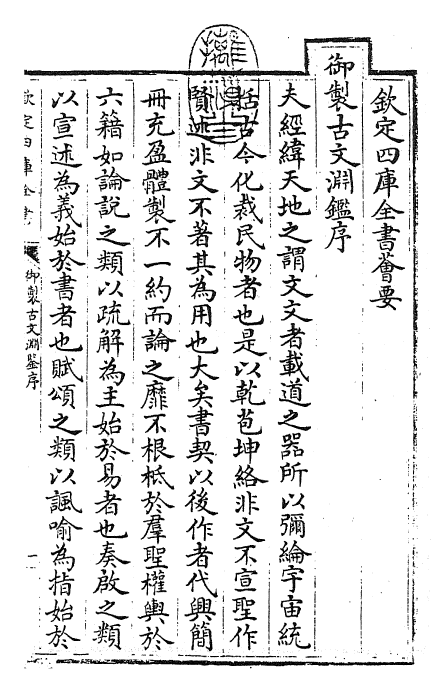 欽定四庫全書薈要
御製古文淵鑑序
夫經緯天地之謂文文者載道之器所以彌綸宇宙統
括古今化裁民物者也是以乾苞坤絡非文不宣聖作
賢述非文不著其為用也大矣書契以後作者代興簡
冊充盈體製不一約而論之靡不根柢於羣聖權輿於
六籍如論說之類以疏解為主始於易者也奏啟之類
以宣述為義始於書者也賦頌之類以諷喻為指始於
欽定四庫全書
御製古文淵鑒序
一